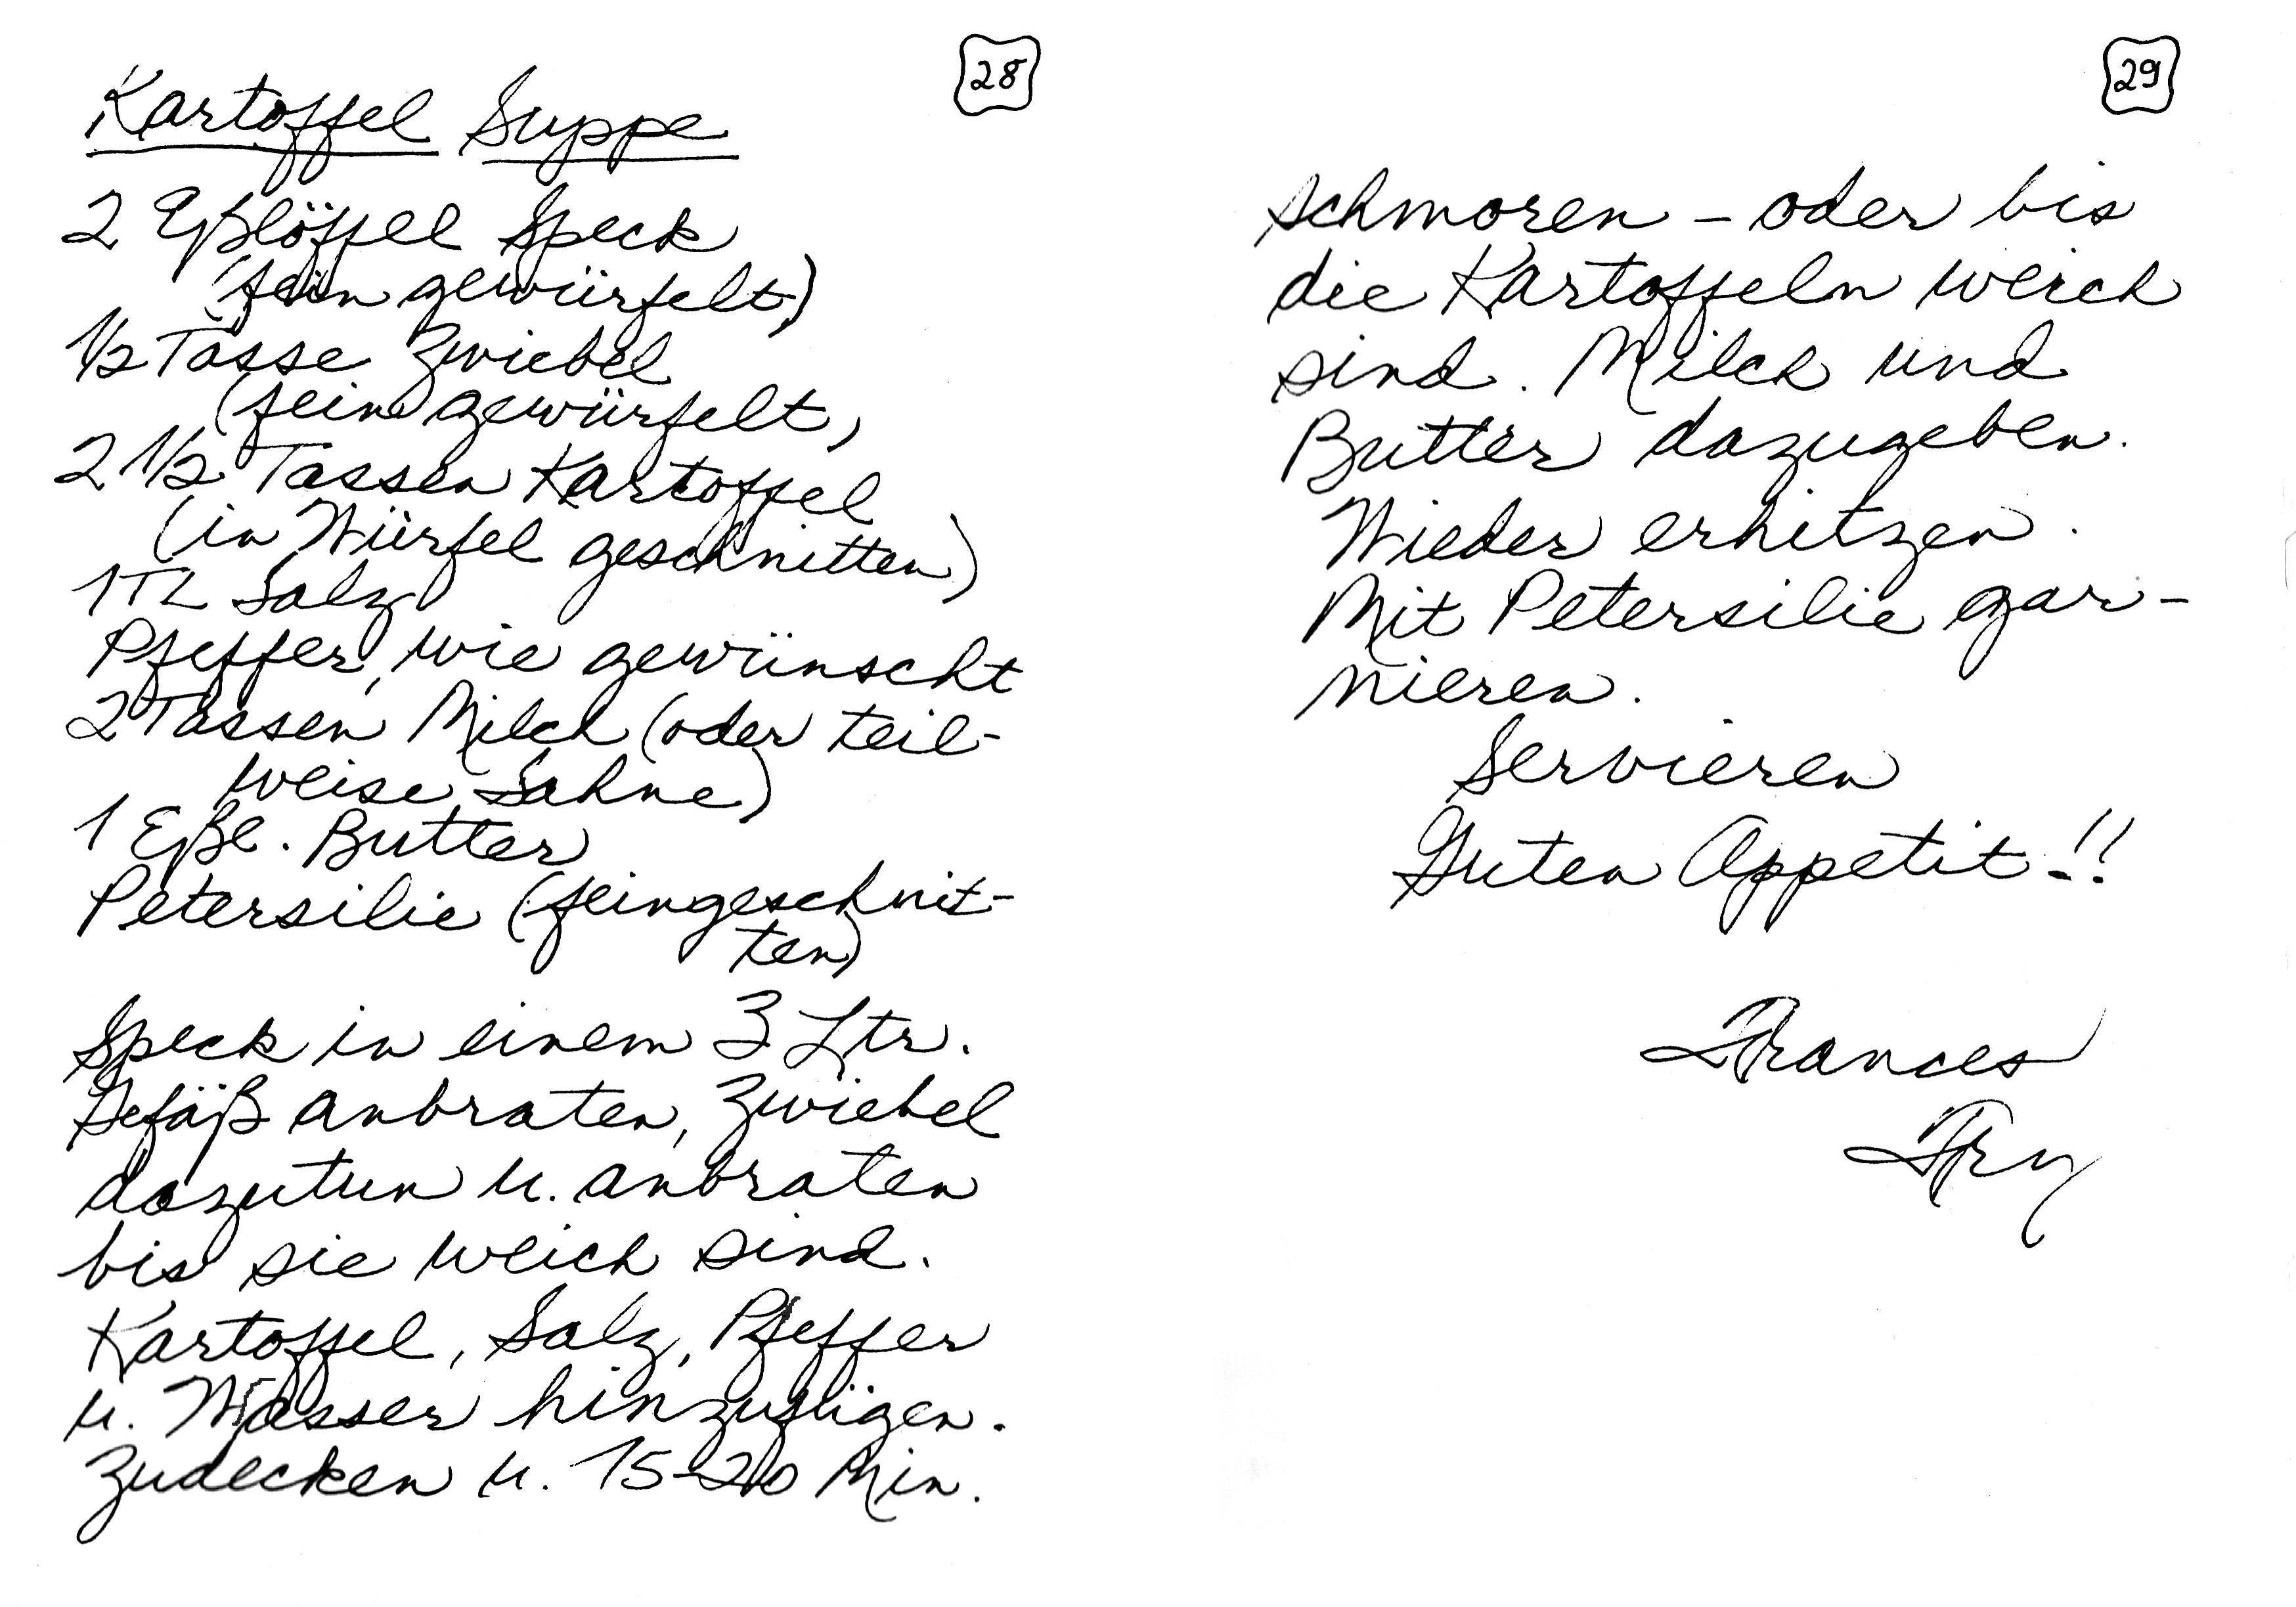 28
Kartoffel Suppe
2 Eßlöffel Speck
(fein gewürfelt)
1/2 Tasse Zwiebel
(fein gewürfelt,
2 1/2 Tassen Kartoffel
(in Würfel geschnitten)
1 TL Salz
Pfeffer, wie gewünscht
2 Tassen Milch (oder teil-
weise Sahne)
1 Eßl. Butter
Petersilie (feingeschnit-
ten)
Speck in einem 3 Ltr.
Gefäß anbraten, Zwiebel
dazutun u. anbraten
bis sie weich sind.
Kartoffel, Salz, Pfeffer
u. Wasser hinzufügen.
Zudecken u. 15-20 Min.
29
schmoren - oder bis
die Kartoffeln weich
sind. Milch und
Butter dazugeben.
Wieder erhitzen.
Mit Petersilie gar-
nieren.
Servieren
Guten Appetit!!
Frances
Fry